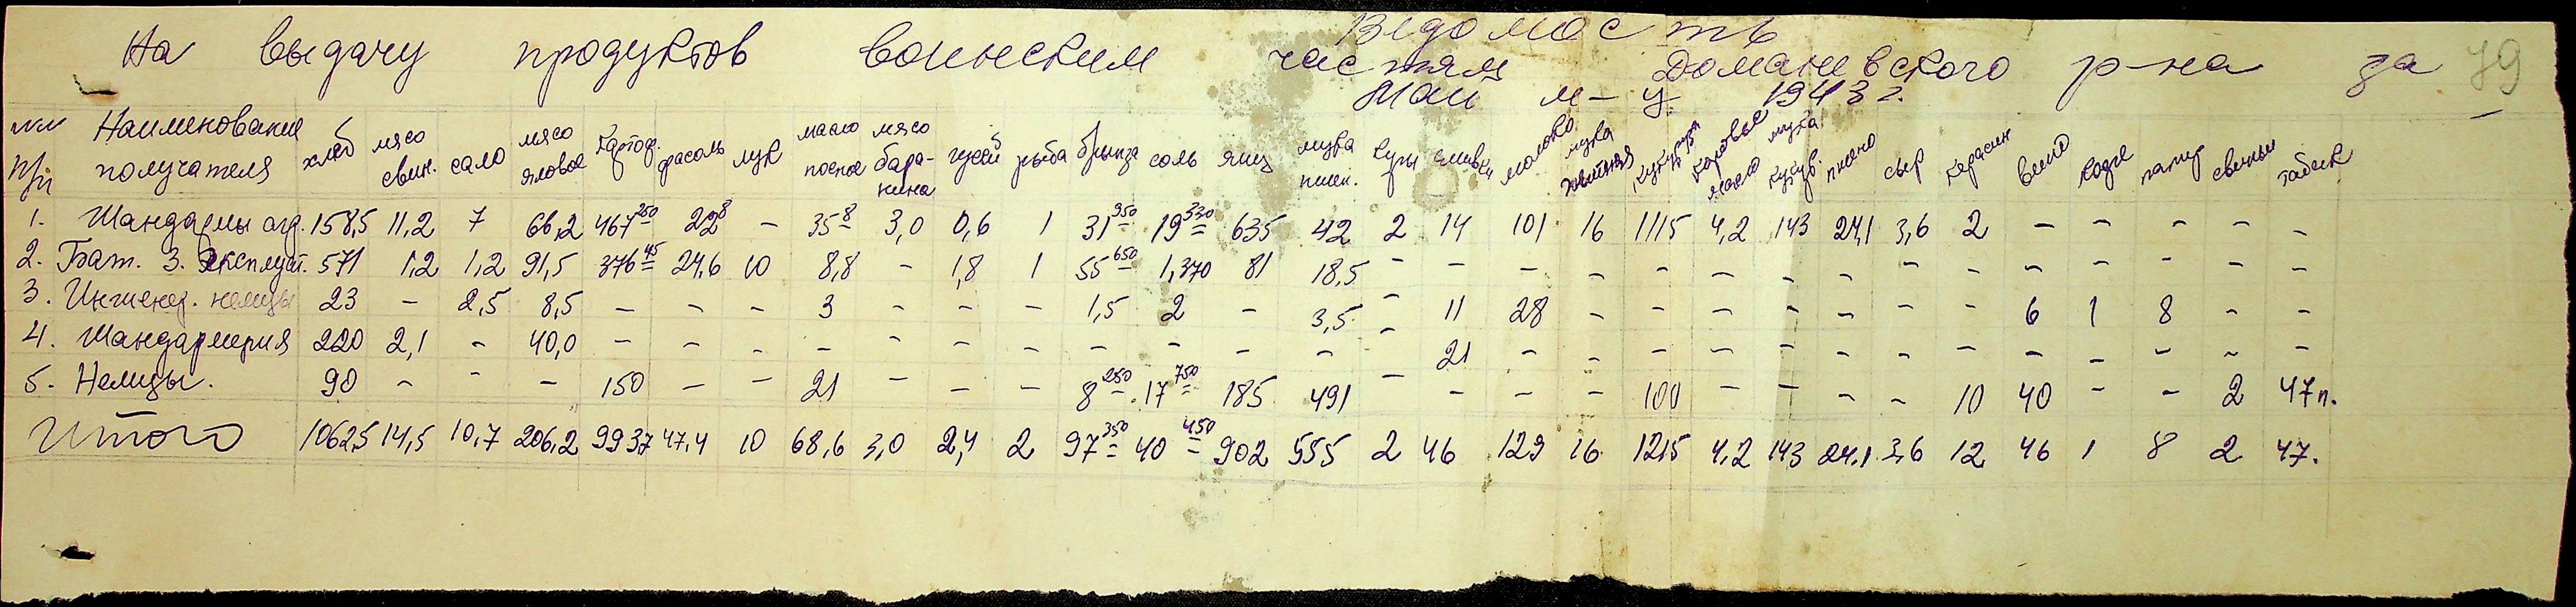 Ведомость
На выдачу продуктов воинским частям Доманевского р-на за 79
Май м-ц 1943 г.
№№ п/п Наименование получателя хлеб мясо свин. сало мясо яловое картоф. фасоль лук масло посное мясо баранина гусей рыба брынза соль яиц мука пшен. куры сливки молоко мука ячменная кукуруза коровье масло мука кукур. пшоно сыр керасин вино козле папир свиньи табак
1. Шандармы агр. 158,5 11,2 7 66,2 467 250 22 8 – 35 8 3,0 0,6 1 31 950 19 330 635 42 2 14 101 16 1115 4,2 143 24,1 3,6 2 – – – – –
2. Бат. 3. Эксплуат. 571 1,2 1,2 91,5 376 45 24,6 10 8,8 – 1,8 1 55 650 1,370 81 18,5 – – – – – – – – – – – – – – –
3. Инженер. немцы 23 – 2,5 8,5 – – – 3 – – – 1,5 2 – 3,5 – 11 28 – – – – – – – 6 1 8 – –
4. Шандармерия 220 2,1 – 40,0 – – – – – – – – – – – – 21 – – – – – – – – – – – – –
5. Немцы. 90 – – – 150 – – 21 – – – 8 250 17 750 185 491 – – – – 100 – – – – 10 40 – – 2 47 п.
Итого 1062,5 14,5 10,7 206,2 9937 47,4 10 68,6 3,0 2,4 2 97 350 40 450 902 555 2 46 129 16 1215 4,2 143 24,1 3,6 12 46 1 8 2 47.